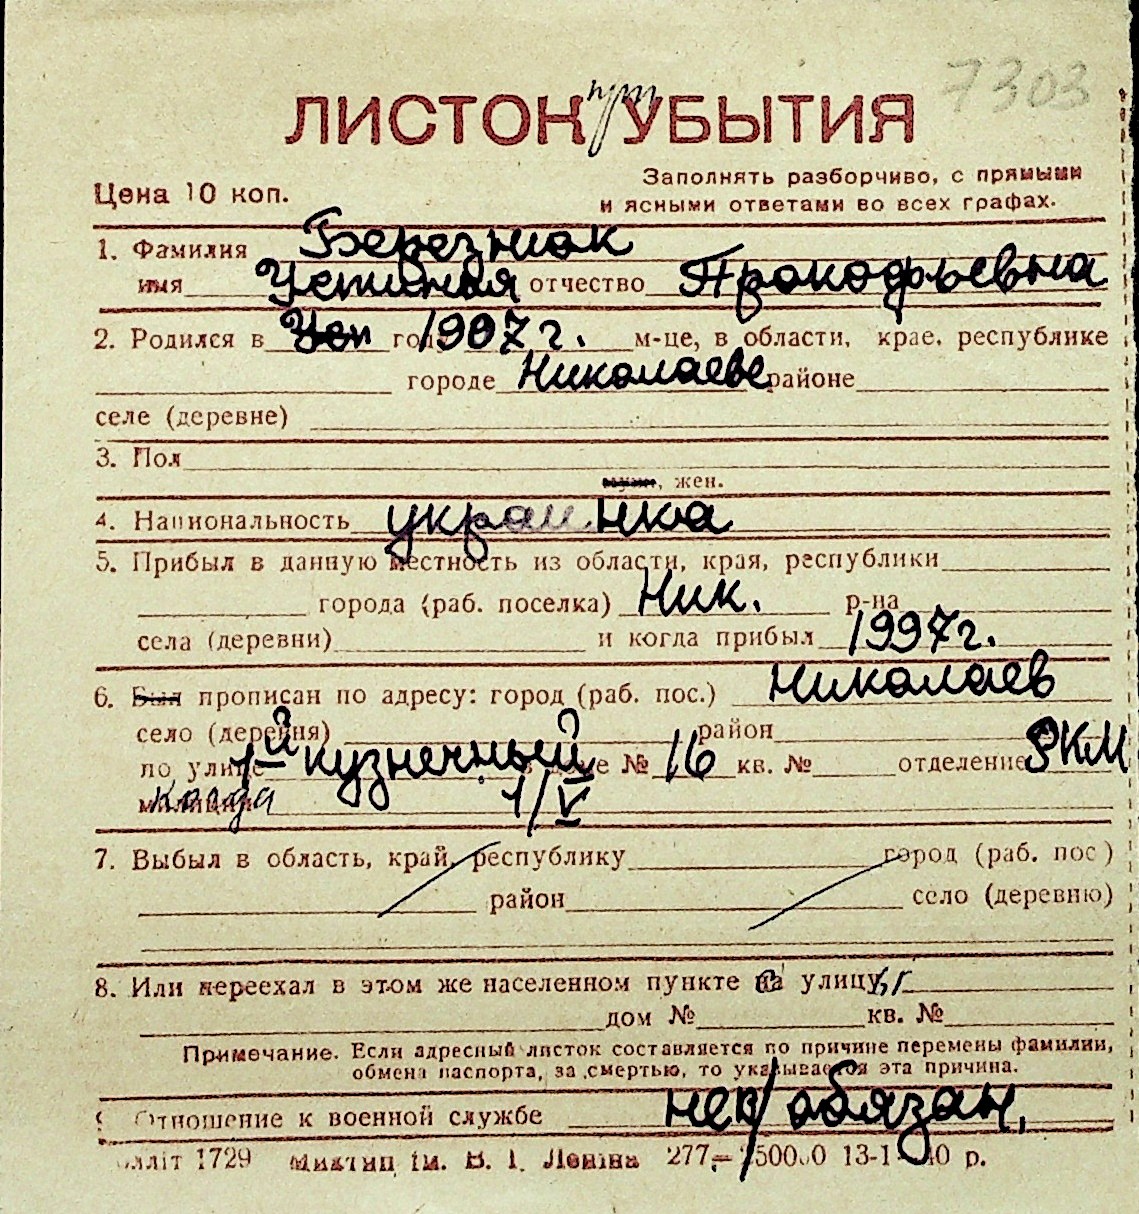 7303
ЛИСТОК при УБЫТИЯ
Цена 10 коп.
Заполнять разборчиво, с прямыми
и ясными ответами во всех графах.
1. Фамилия Березнюк
имя Устиния отчество Прокофьевна
2. Родился в году 1907 г. м-це, в области, крае, республике
городе Николаеве районе
селе (деревне)
3. Пол
муж., жен.
4. Национальность украинка
5. Прибыл в данную местность из области, края, республики
города (раб. поселка) Ник. р-на
села (деревни) и когда прибыл 1997г.
6. Был прописан по адресу: город (раб. пос.) Николаев
село (деревня) район
по улице 1-й кузнечный в доме № 16 кв. № отделение РКМ
милиции когда 1/V
7. Выбыл в область, край, республику город (раб. пос)
район село (деревню)
8. Или переехал в этом же населенном пункте с улицы
дом № кв. №
Примечание. Если адресный листок составляется по причине перемены фамилии,
обмена паспорта, за смертью, то указывается эта причина.
9 Отношение к военной службе нев/обязан.
лліт 1729 ім. В. І. Леніна 277,— 13-1 40 р.